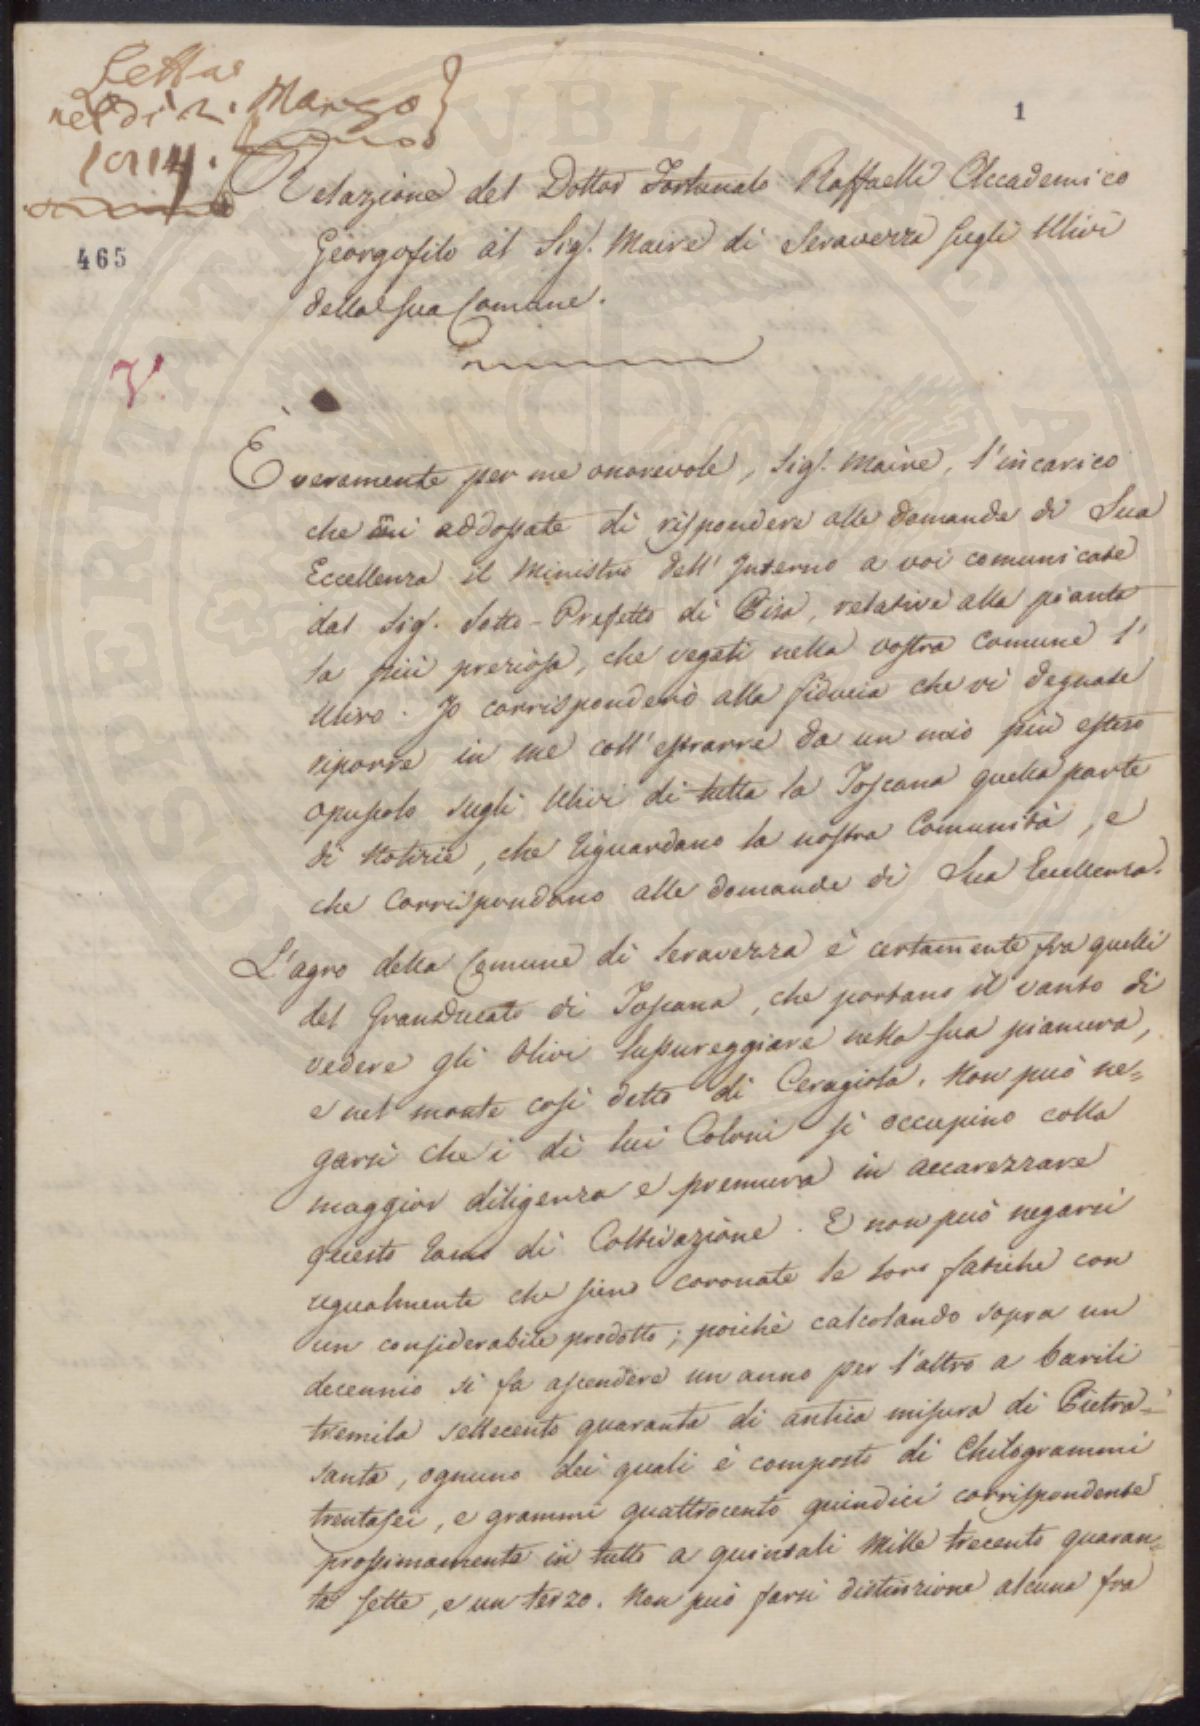 Letta
nel dì 2. Marzo
1814.
1
465
V.
Relazione del Dottor Fortunato Raffaelli Accademico
Georgofilo al Sig.r Maire di Seravezza sugli Ulivi
della sua Comune.
È veramente per me onorevole, Sig.r Maire, l'incarico
che mi addossate di rispondere alle domande di Sua
Eccellenza il Ministro dell'Interno a voi comunicate
dal Sig.r Sotto-Prefetto di Pisa, relative alla pianta
la più preziosa, che vegeti nella vostra Comune l'
Ulivo. Io corrisponderò alla fiducia che vi degnate
riporre in me coll'estrarre da un mio più esteso
opuscolo sugli Ulivi di tutta la Toscana quella parte
di Notizie, che riguardano la nostra Comunità, e
che corrispondono alle domande di Sua Eccellenza.
L'agro della Comune di Seravezza è certamente fra quelli
del GranDucato di Toscana, che portano il vanto di
vedere gli Olivi lussureggiare nella sua pianura,
e nel monte così detto di Ceragiola. Non può ne=
garsi che i di lui Coloni si occupino colla
maggior diligenza e premura in accarezzare
questo ramo di Coltivazione. E non può negarsi
ugualmente che sieno coronate le loro fatiche con
un considerabile prodotto; poichè calcolando sopra un
decennio si fa ascendere un anno per l'altro a barili
tremila settecento quaranta di antica misura di Pietra=
santa, ognuno dei quali è composto di Chilogrammi
trentasei, e grammi quattrocento quindici corrispondente
prossimamente in tutto a quintali Mille trecento quaran=
ta sette, e un terzo. Non può farsi distinzione alcuna fra